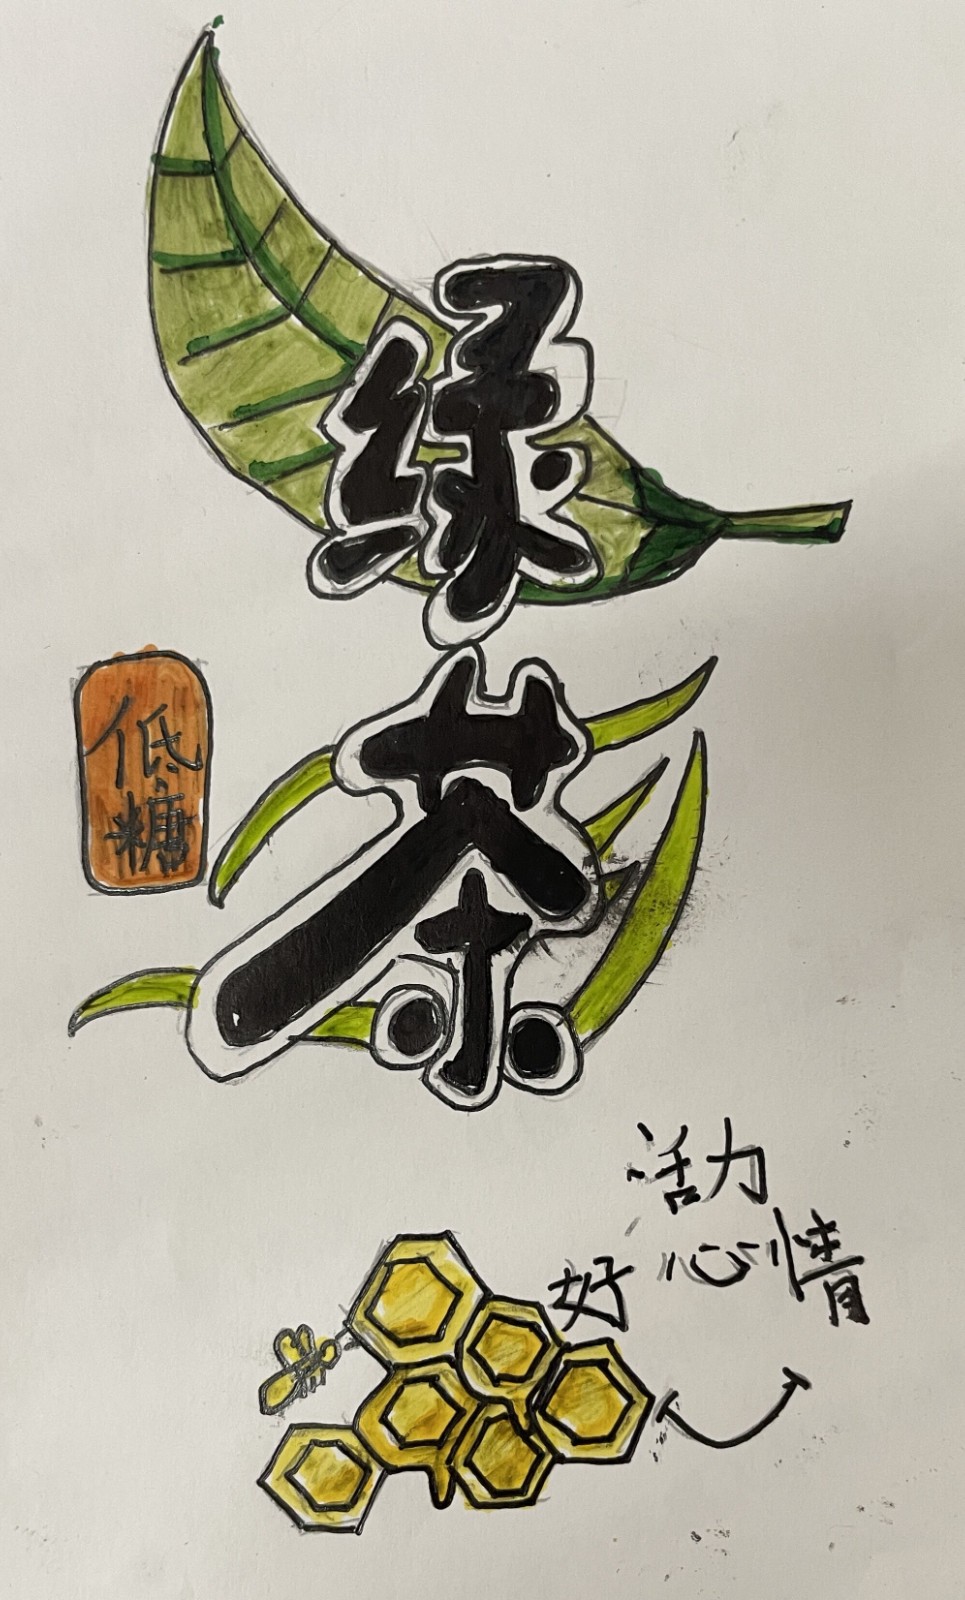 绿
茶
低
糖
活力
好心情